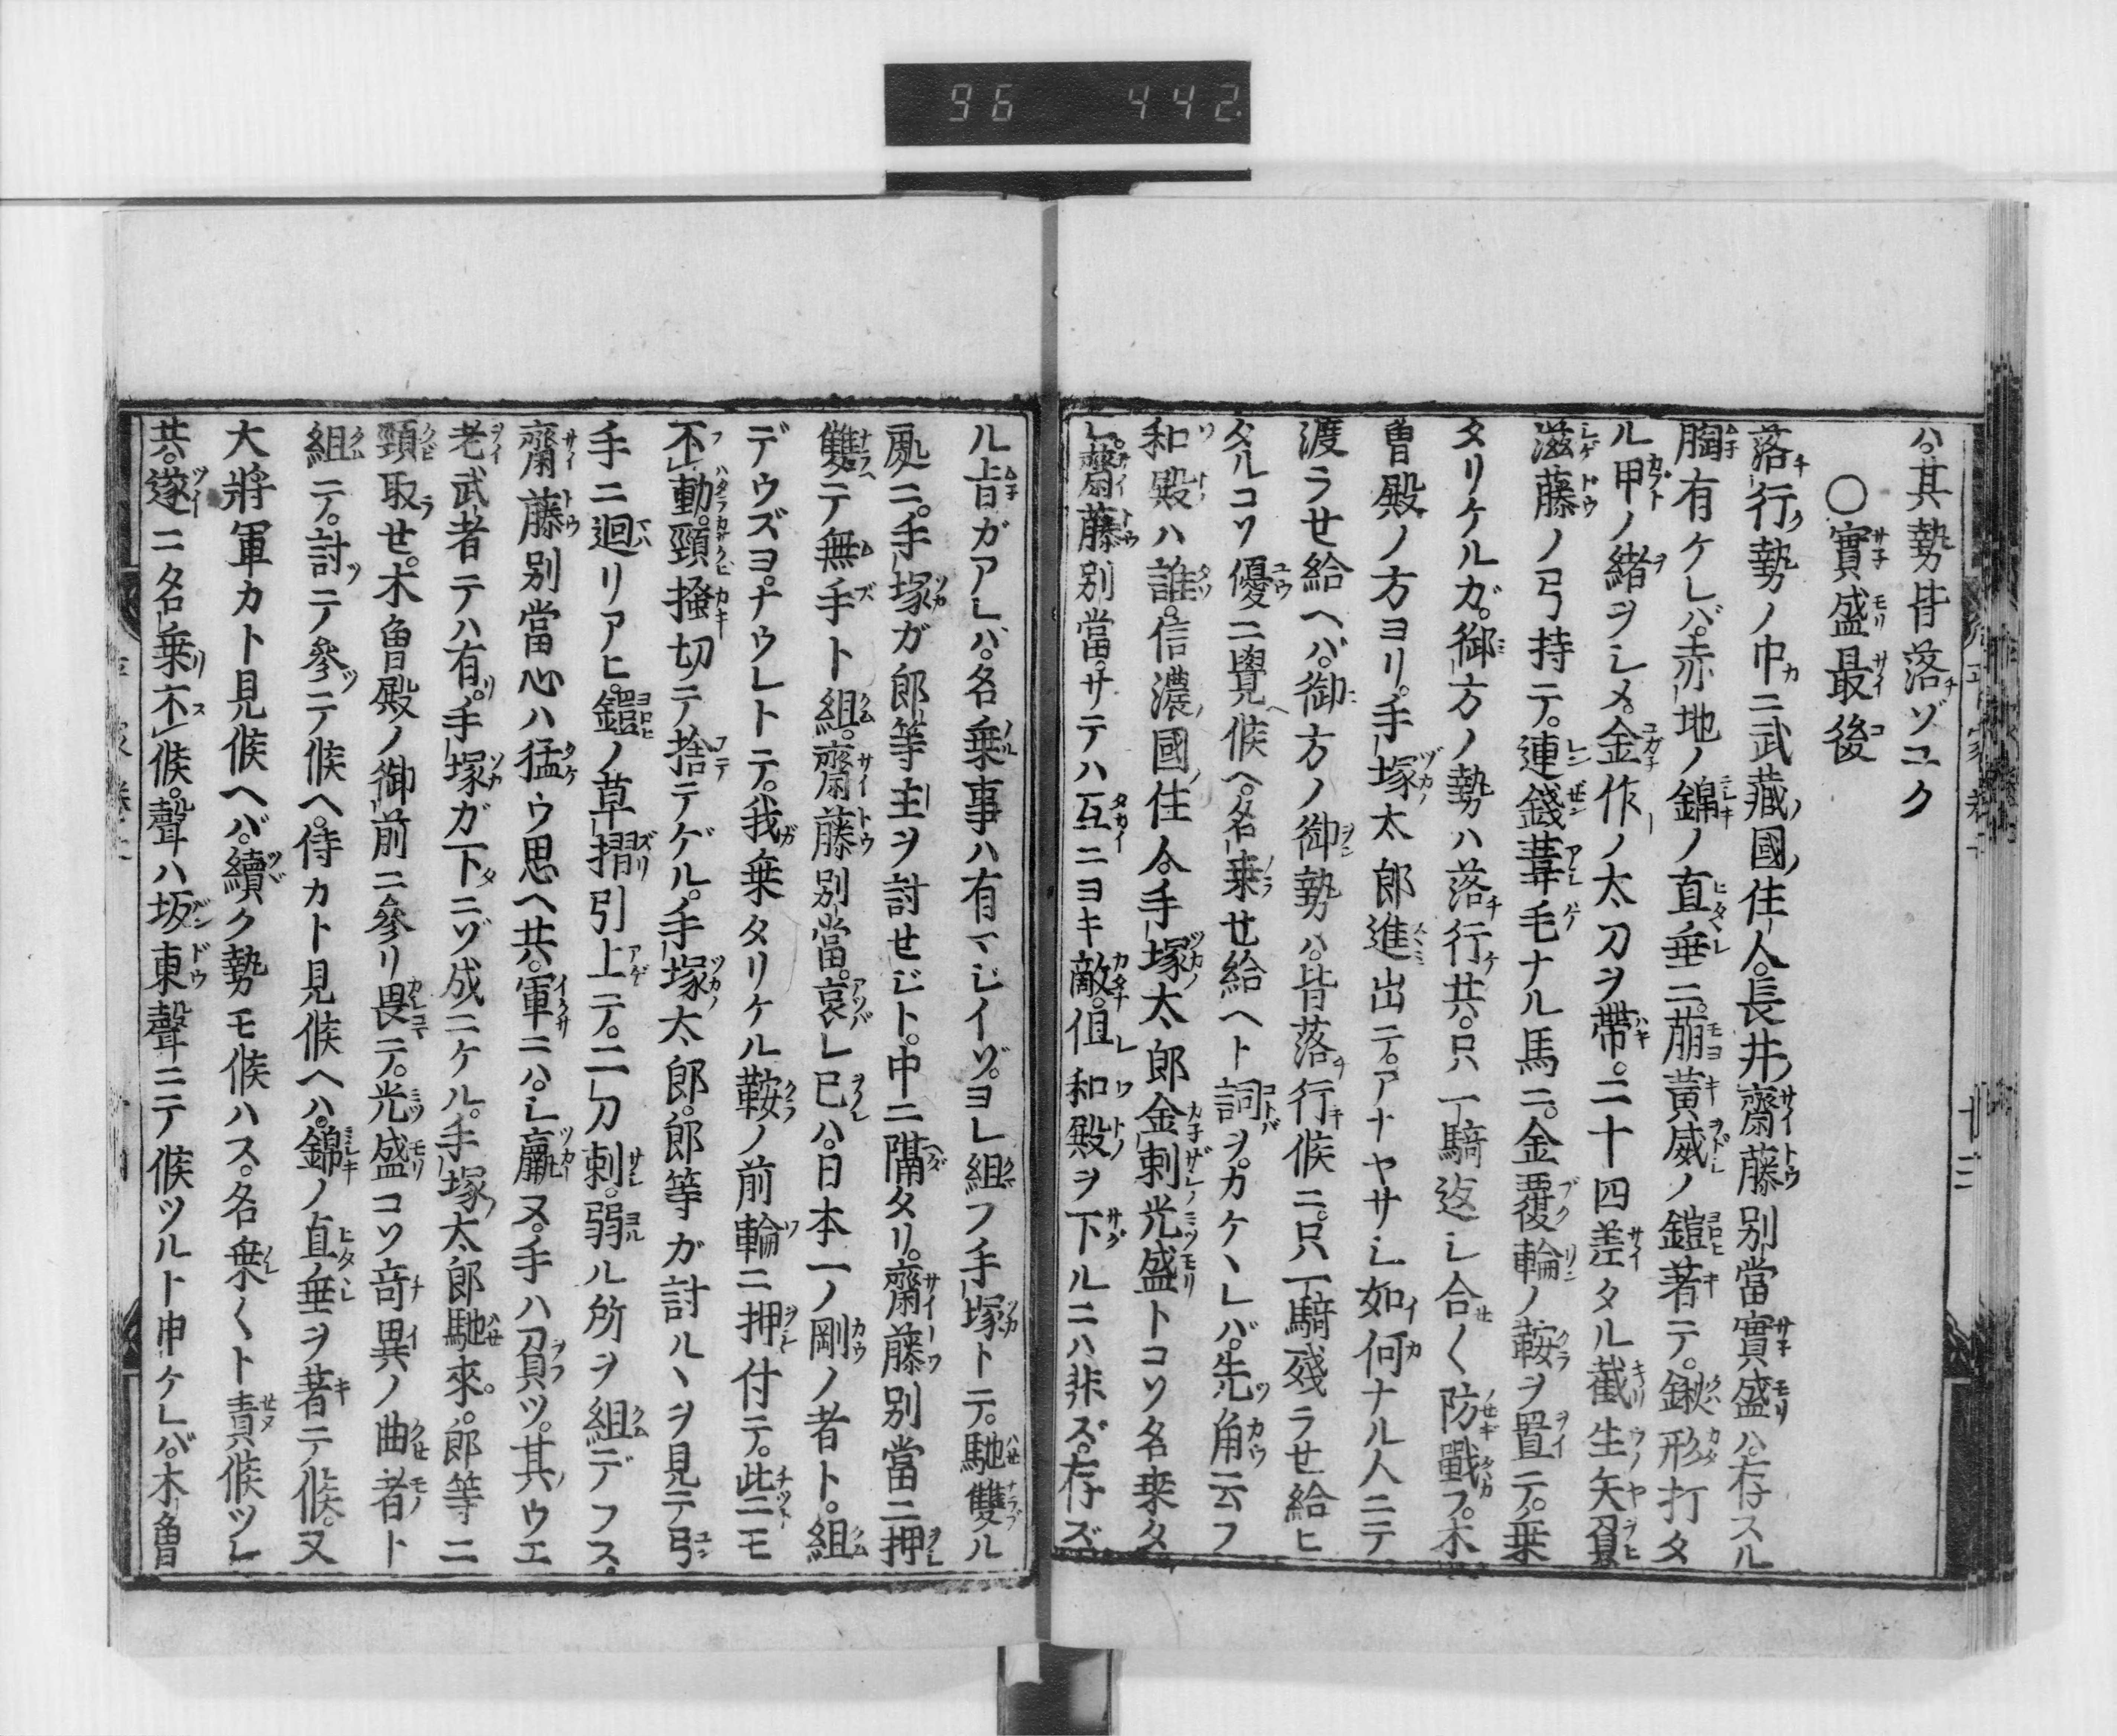 96 442
ハ。其勢皆落ゾユク
○實盛最後
落行勢ノ中ニ武藏國住人。長井齋藤別當實盛ハ。存スル
胸有ケレバ。赤地ノ錦ノ直垂ニ。萠黃威ノ鎧著テ。鍬形打タ
ル甲ノ緒ヲシメ。金作ノ太刀ヲ帶。二十四差タル截生矢負
滋藤ノ弓持テ。連錢葦毛ナル馬ニ。金覆輪ノ鞍ヲ置テ。乗
タリケルガ。御方ノ勢ハ落行共。只一騎返シ合〱防戰フ。木
曽殿ノ方ヨリ。手塚太郎進出テ。アナヤサシ如何ナル人ニテ
渡ラせ給ヘバ。御方ノ御勢ハ。皆落行候ニ。只一騎残ラせ給ヒ
タルコソ優ニ覺候ヘ。名乗せ給ヘト詞ヲカケヽレバ。先角云フ
和殿ハ誰。信濃國住人。手塚太郎金刺光盛トコソ名乗タ
レ。齋藤別當。サテハ互ニヨキ敵。但和殿ヲ下ルニハ非ズ。存ズ
ル旨ガアレハ。名乗事ハ有マジイゾ。ヨレ組フ手塚トテ。馳雙ル
処ニ。手塚ガ郎等主ヲ討せジト。中ニ隔タリ。齋藤別當ニ押
雙テ無手ト組。齋藤別當。哀レ己ハ。日本一ノ剛ノ者ト。組
デウズヨ。ナウレトテ。我乗タリケル鞍ノ前輪ニ押付テ。此ニモ
不動。頸搔切テ捨テゲル。手塚太郎。郎等ガ討ルヽヲ見テ弓
手ニ迴リアヒ。鎧ノ草摺引上テ。二刀刺。弱ル所ヲ組デフス。
齋藤別當心ハ猛ウ思ヘ共。軍ニハ。シ羸ヌ。手ハ負ツ。其ウエ
老武者テハ有。手塚ガ下ニゾ成ニケル。手塚太郎馳來。郎等ニ
頸取せ。木曽殿ノ御前ニ參リ畏テ。光盛コソ竒異ノ曲者ト
組テ。討テ參テ候ヘ。侍カト見候ヘハ。錦ノ直垂ヲ著テ候。又
大將軍カト見候ヘバ。續ク勢モ候ハス。名乗〱ト責候ツレ
共。遂ニ名乗不候。聲ハ坂東聲ニテ候ツルト申ケレバ。木曽